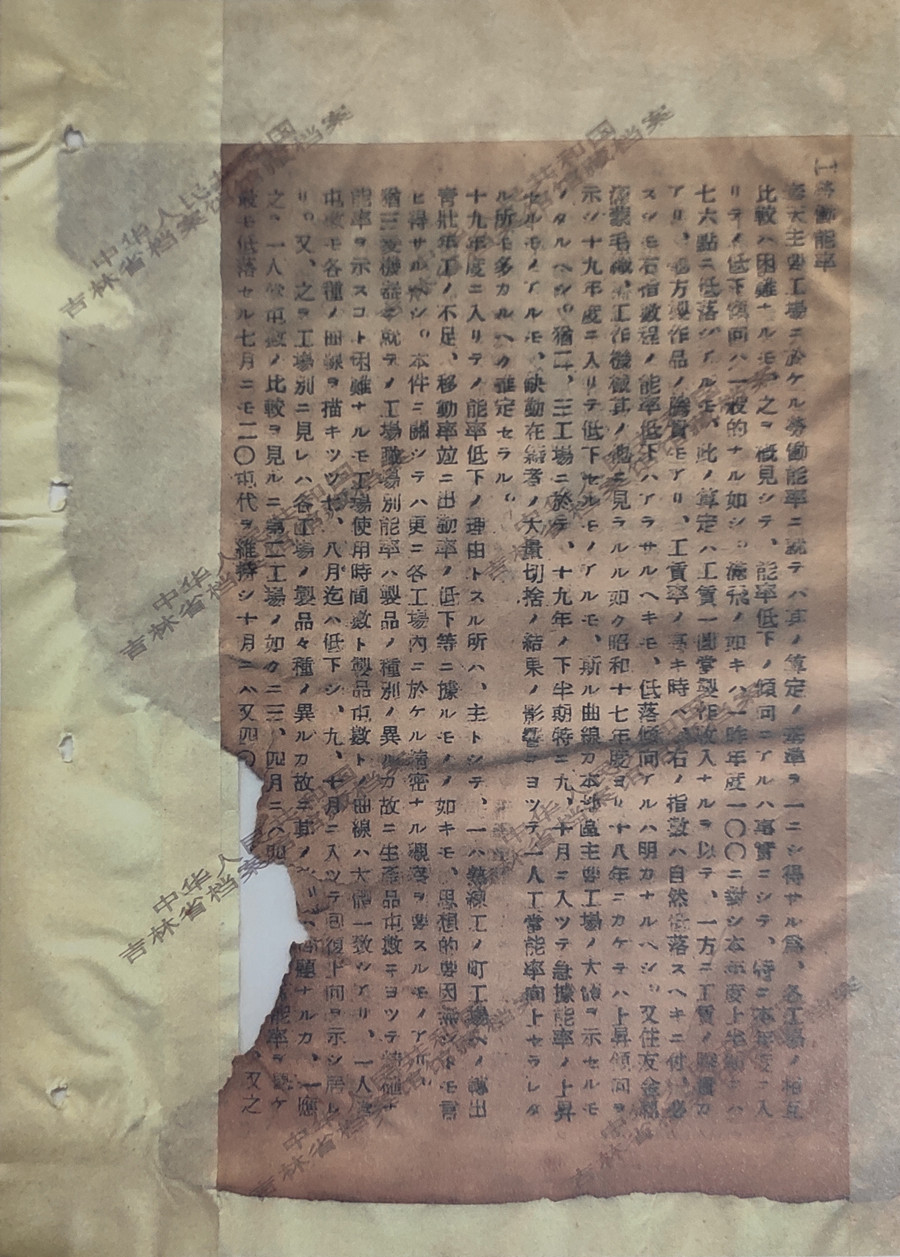 工 勞働能率
奉天主要工場ニ於ケル勞働能率ニ就テハ其ノ算定ノ基準ヲ一ニシ得サル爲、各工場ノ相互
比較ハ困難ナルモ、之ヲ概見シテ、能率低下ノ傾向ニアルハ事實ニシテ、特ニ本年度ニ入
リテノ低下傾向ハ一般的ナル如シ。滿飛ノ如キハ一昨年度一〇〇ニ對シ本年度上半期ニハ
七六點ニ低落シアルモ、此ノ算定ハ工賃一圓當製作收入ナルヲ以テ、一方ニ工賃ノ騰貴カ
アリ、他方製作品ノ騰貴モアリ、工賃率ノ高キ時ハ、右ノ指數ハ自然低落スヘキニ付、必
スシモ右指數程ノ能率低下ハアラサルヘキモ、低落傾向アルハ明カナルヘシ。又住友金屬
滿蒙毛織、工作機械其ノ他ニ見ラルル如ク昭和十七年度ヨリ十八年ニカケテハ上昇傾向ヲ
示シ十九年度ニ入リテ低下セルモノアルモ、斯ル曲線カ本地區主要工場ノ大勢ヲ示セルモ
ノタルヘシ。猶二、三工場ニ於テ、十九年ノ下半期特ニ九、十月ニ入ツテ急據能率ノ上昇
セルモノアルモ、缺勤在籍者ノ大量切捨ノ結果ノ影響ニヨツテ一人工當能率向上セラレタ
ル所モ多カルヘク推定セラル。
十九年度ニ入リテノ能率低下ノ理由トスル所ハ、主トシテ、一ハ熟練工ノ町工場ヘノ轉出
靑壯年工ノ不足、移動率竝ニ出勤率ノ低下等ニ據ルモノノ如キモ、思想的要因無シトモ言
ヒ得サルヘシ。本件ニ關シテハ更ニ各工場內ニ於ケル精密ナル觀察ヲ要スルモノアリ。
猶三菱機器ニ就テノ工場職場別能率ハ製品ノ種別ノ異ルカ故ニ生產品屯數ニヨツテ
能率ヲ示スコト困難ナルモ工場使用時間數ト製品屯數トノ曲線ハ大體一致シアリ、一人當
屯數モ各種ノ曲線ヲ描キツツ七、八月迄ハ低下シ、九、十月ニ入ツテ回復上向ヲ示シ居レ
リ。又、之ヲ工場別ニ見レハ各工場ノ製品々種ノ異ルカ故ニ其ノ ハ 題ナルカ、一應
之ヲ一人當屯數ノ比較ヲ見ルニ第二工場ノ如ク二三、四月ニハ四 能率ヲ ケ
最モ低落セル七月ニモ二〇屯代ヲ維持シ十月ニハ又四〇 、又之
中华人民共和国
吉林省档案馆馆藏档案